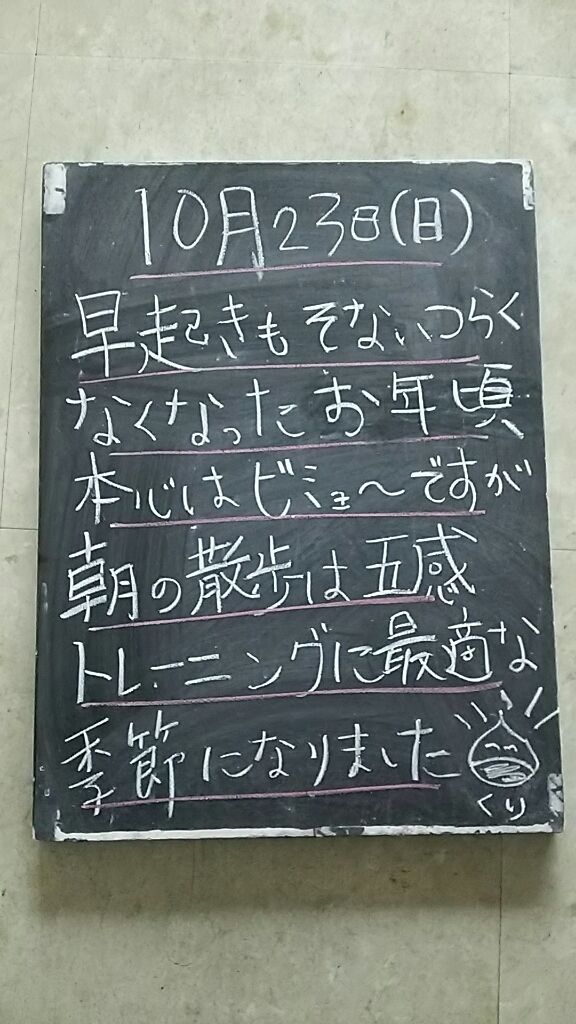 10月23日(日)
早起きもそないつらく
なくなったお年頃
本心はビミョ〜ですが
朝の散歩は五感
トレーニングに最適な
季節になりました
くり